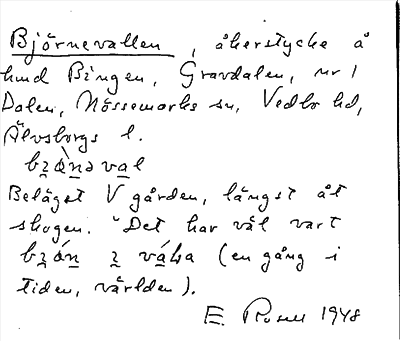 Björnevallen, åkerstycke å
hmd Bingen, Gravdalen, nr 1
Dalen, Nössemarks sn, Vedbo hd,
Älvsborgs l.
bẕò̱nəva̱l
Beläget V gården, längst åt
skogen. "Det har väl vart
bẕó̱ṉ ẕ vá̱ka (en gång i
tiden, världen).
E. Rosell 1948